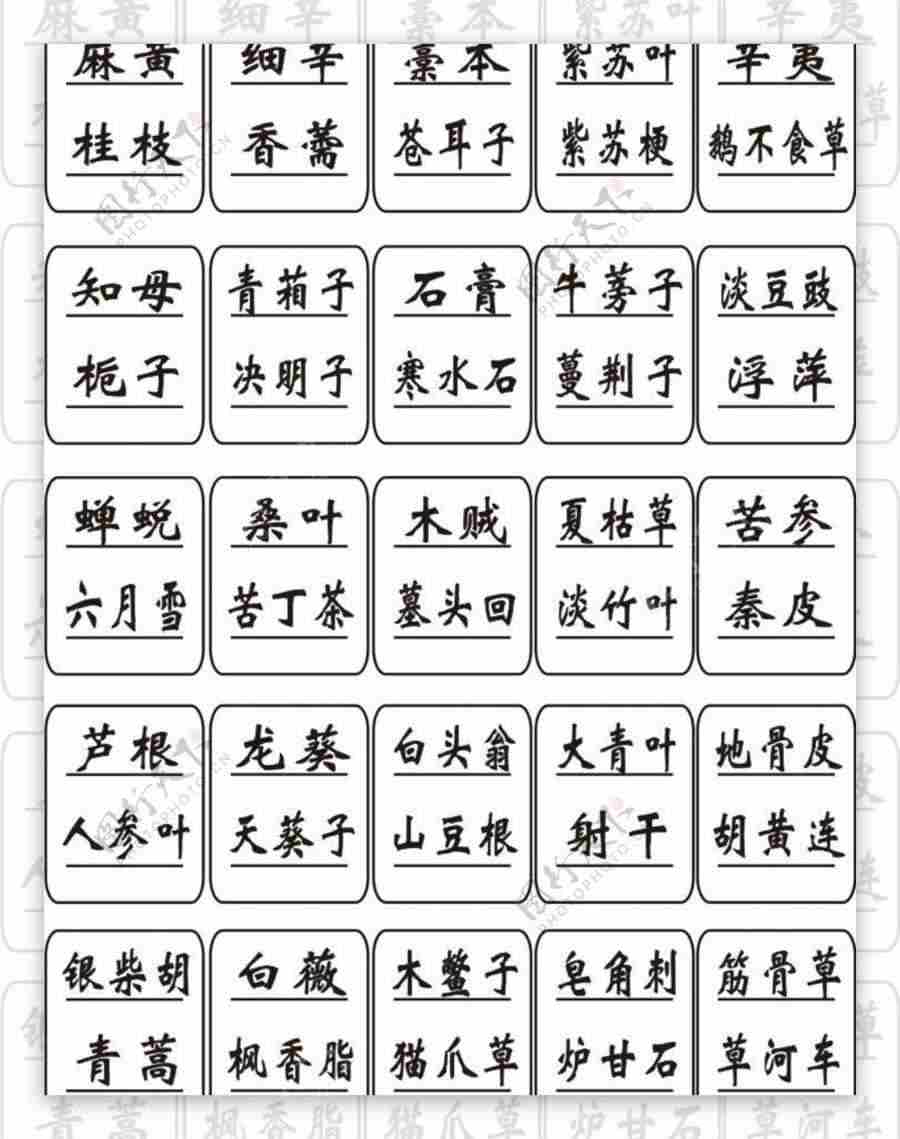 麻黄 细辛 藁本 紫苏叶 辛夷
桂枝 香薷 苍耳子 紫苏梗 鹅不食草
知母 青葙子 石膏 牛蒡子 淡豆豉
栀子 决明子 寒水石 蔓荆子 浮萍
蝉蜕 桑叶 木贼 夏枯草 苦参
六月雪 苦丁茶 墓头回 淡竹叶 秦皮
芦根 龙葵 白头翁 大青叶 地骨皮
人参叶 天葵子 山豆根 射干 胡黄连
银柴胡 白薇 木鳖子 皂角刺 筋骨草
青蒿 枫香脂 猫爪草 炉甘石 草河车